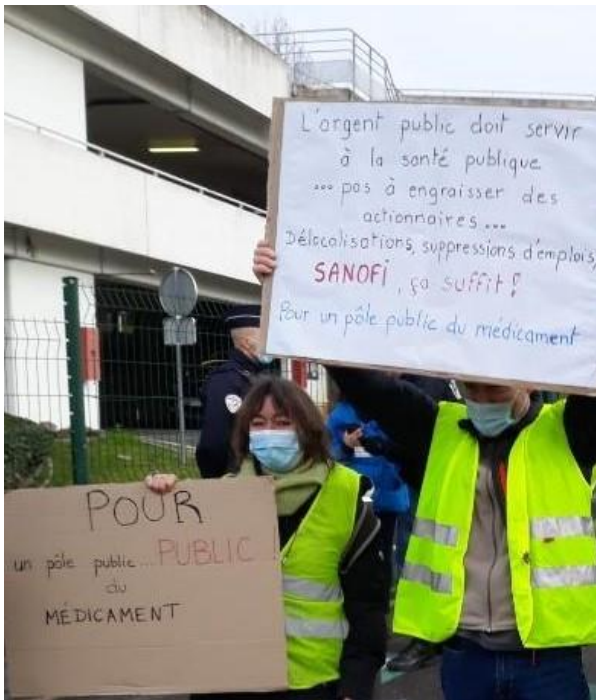 L'argent public doit servir
à la santé publique
... pas à engraisser des
actionnaires...
Délocalisations, suppressions d'emplois,
SANOFI, ça suffit !
Pour un pôle public du médicament
POUR
un pôle public... PUBLIC !
du
MÉDICAMENT